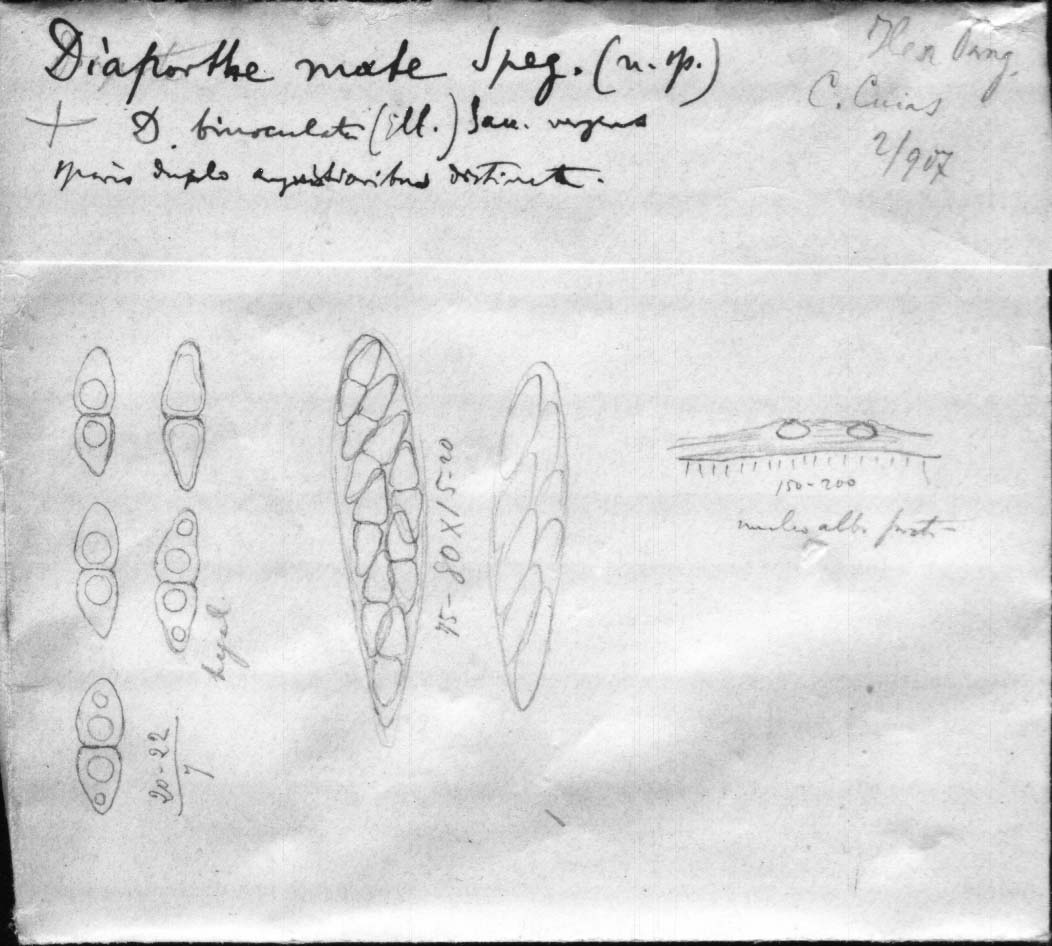 Diaporthe mate Speg. (n. sp.)
D. binoculata (Ell.) Sacc.
sporis duplo angustioribus distincta.
Ilex
C.
2/907
hyal
20-22
7
75-80 X 15-20
150-200